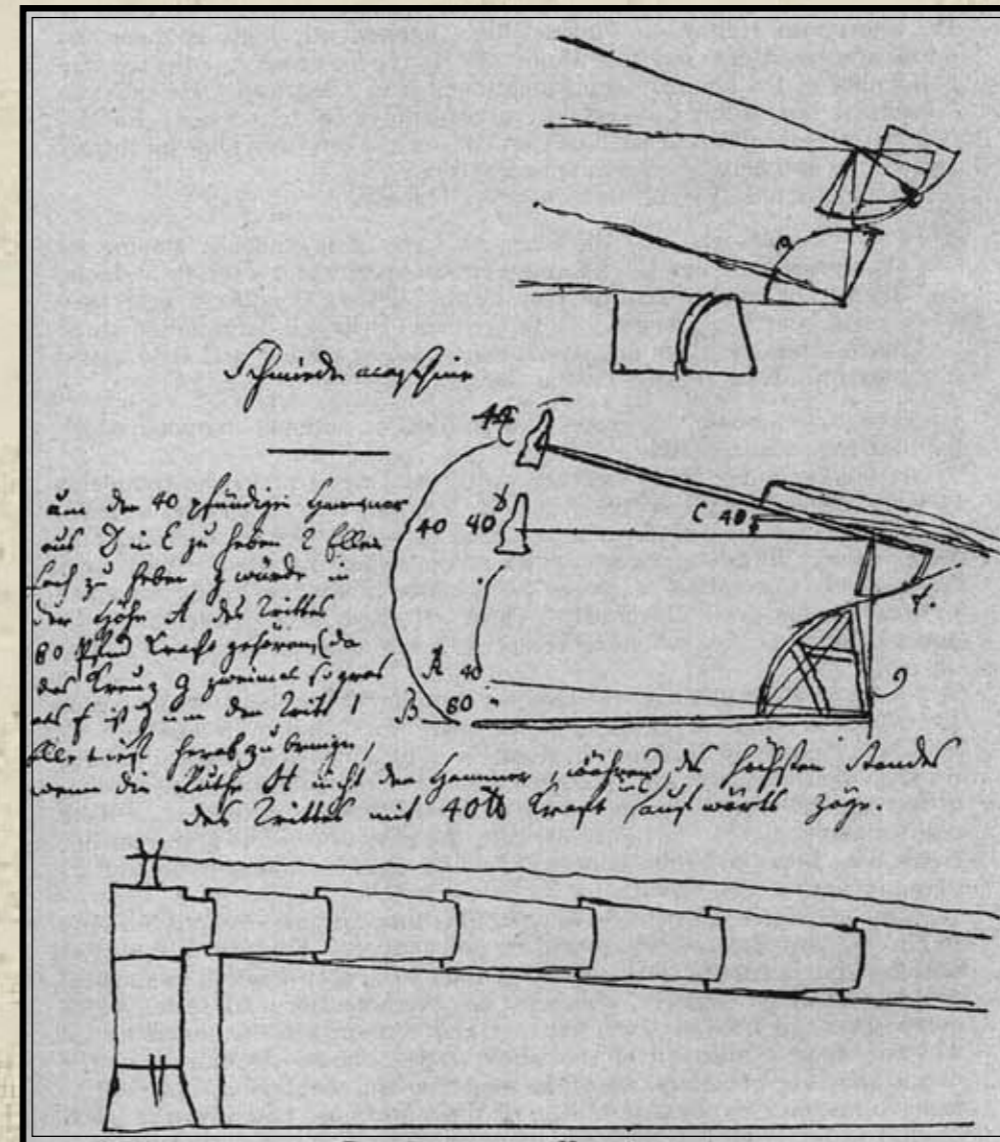 Schmiede maschine
um den 40 pfündigen Hammer
aus D in E zu heben 2 Ellen
hoch zu heben würde in
der Höhe A des Trittes
80 Pfund Kraft gehören (da
das Kreuz g zweimal so gros
als f ist) um den Tritt 1
Elle tief herab zu bringen,
wenn die Ruthe H nicht den Hammer, während des höchsten Standes
des Trittes mit 40 Kraft aufwärts zöge.
B
40
40 40
C 40
f.
A 40
B 80
g